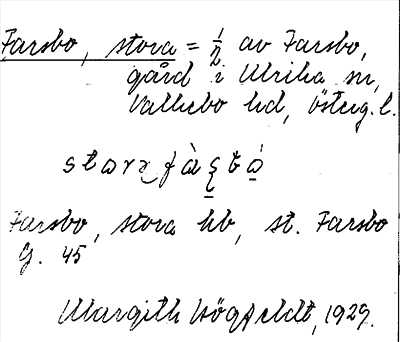 Farsbo, stora = 1/2 av Farsbo,
gård i Ulrika sn,
Valkebo hd, Östeg. l.
Farsbo, stora hb, st. Farsbo
G. 45
Margith Högfeldt, 1929.